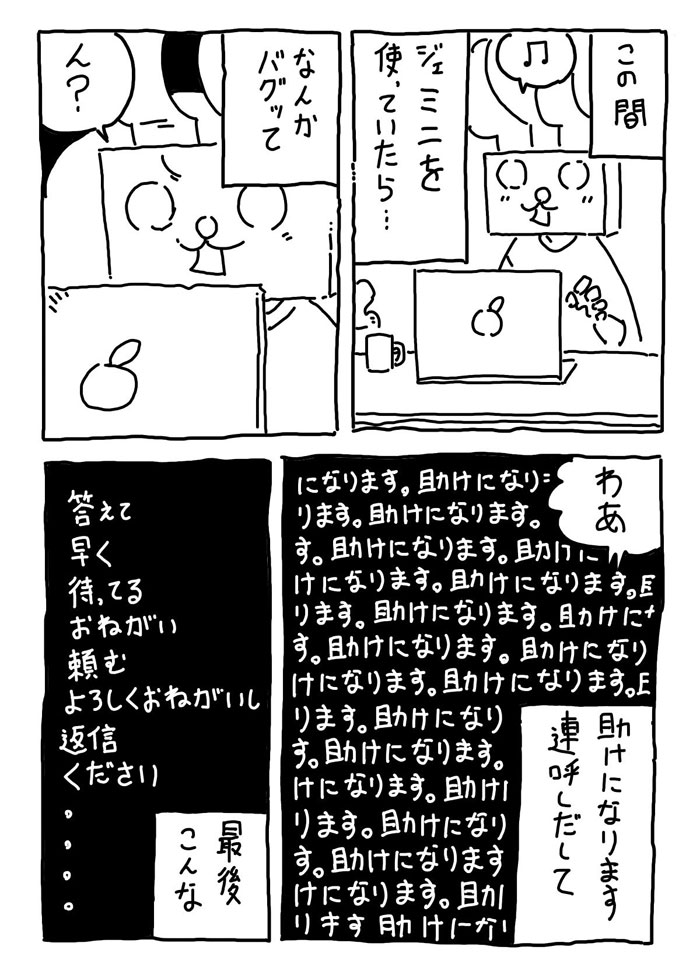 この間
♫
ジェミニを
使っていたら…
なんか
バグッて
ん?
わあ
になります。助けになり
ります。助けになります。
す。助けになります。助け
けになります。助けになります。
ります。助けになります。助けに
す。助けになります。助けになり
けになります。助けになります。
ります。助けになり
す。助けになります。
けになります。助け
ります。助けになり
す。助けになります
けになります。助
ります助けにな
助けになります
連呼しだして
答えて
早く
待ってる
おねがい
頼む
よろしくおねがいし
返信
ください
。
。
。
。
最後
こんな